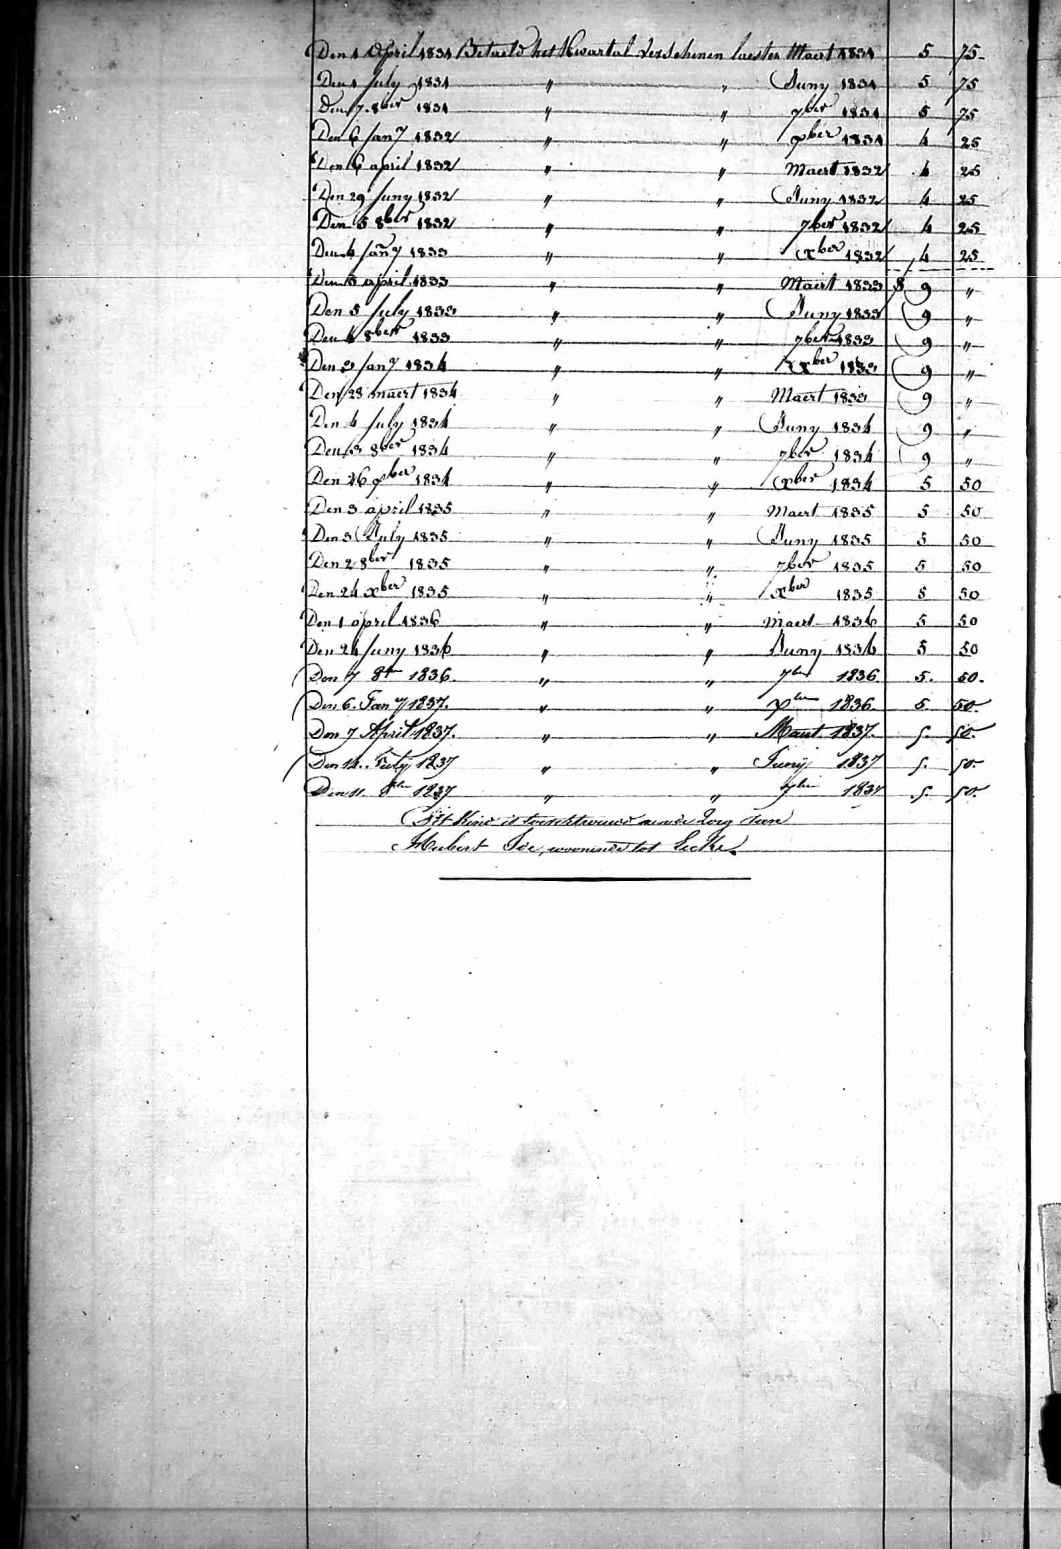 Den 1 April 1831 Betaeld het Kwartal Verschenen laesten Maert 1831 5 75
Den 1 July 1831 " " Juny 1831 5 75
Den 7 8ber 1831 " " 7ber 1831 5 75
Den 6 Jany 1832 " " xber 1831 4 25
Den 6 april 1832 " " Maert 1832 4 25
Den 29 Juny 1832 " " Juny 1832 4 25
Den 5 8ber 1832 " " 7ber 1832 4 25
Den 4 Jany 1833 " " xber 1832 4 25
Den 5 april 1833 " " Maert 1833 9 "
Den 5 July 1833 " " Juny 1833 9 "
Den 4 8ber 1833 " " 7ber 1833 9 "
Den 3 Jany 1834 " " xber 1833 9 "
Den 28 maert 1834 " " Maert 1833 9 "
Den 4 July 1834 " " Juny 1834 9 "
Den 3 8ber 1834 " " 7ber 1834 9 "
Den 26 xber 1834 " " xber 1834 5 50
Den 3 april 1835 " " Maert 1835 5 50
Den 3 July 1835 " " Juny 1835 5 50
Den 2 8ber 1835 " " 7ber 1835 5 50
Den 24 xber 1835 " " xber 1835 5 50
Den 1 april 1836 " " Maert 1836 5 50
Den 24 Juny 1836 " " Juny 1836 5 50
Den 7 8br 1836. " " 7ber 1836 5. 50.
Den 6. Jany 1837. " " xber 1836 5. 50.
Den 7 April 1837. " " Maert 1837. 5. 50.
Den 14. July 1837 " " Juny 1837 5. 50.
Den 11. 8ber 1837 " " 7ber 1837 5. 50.
Dit Kind is toevertrouwd aen de Zorg van
Hubert woonende tot